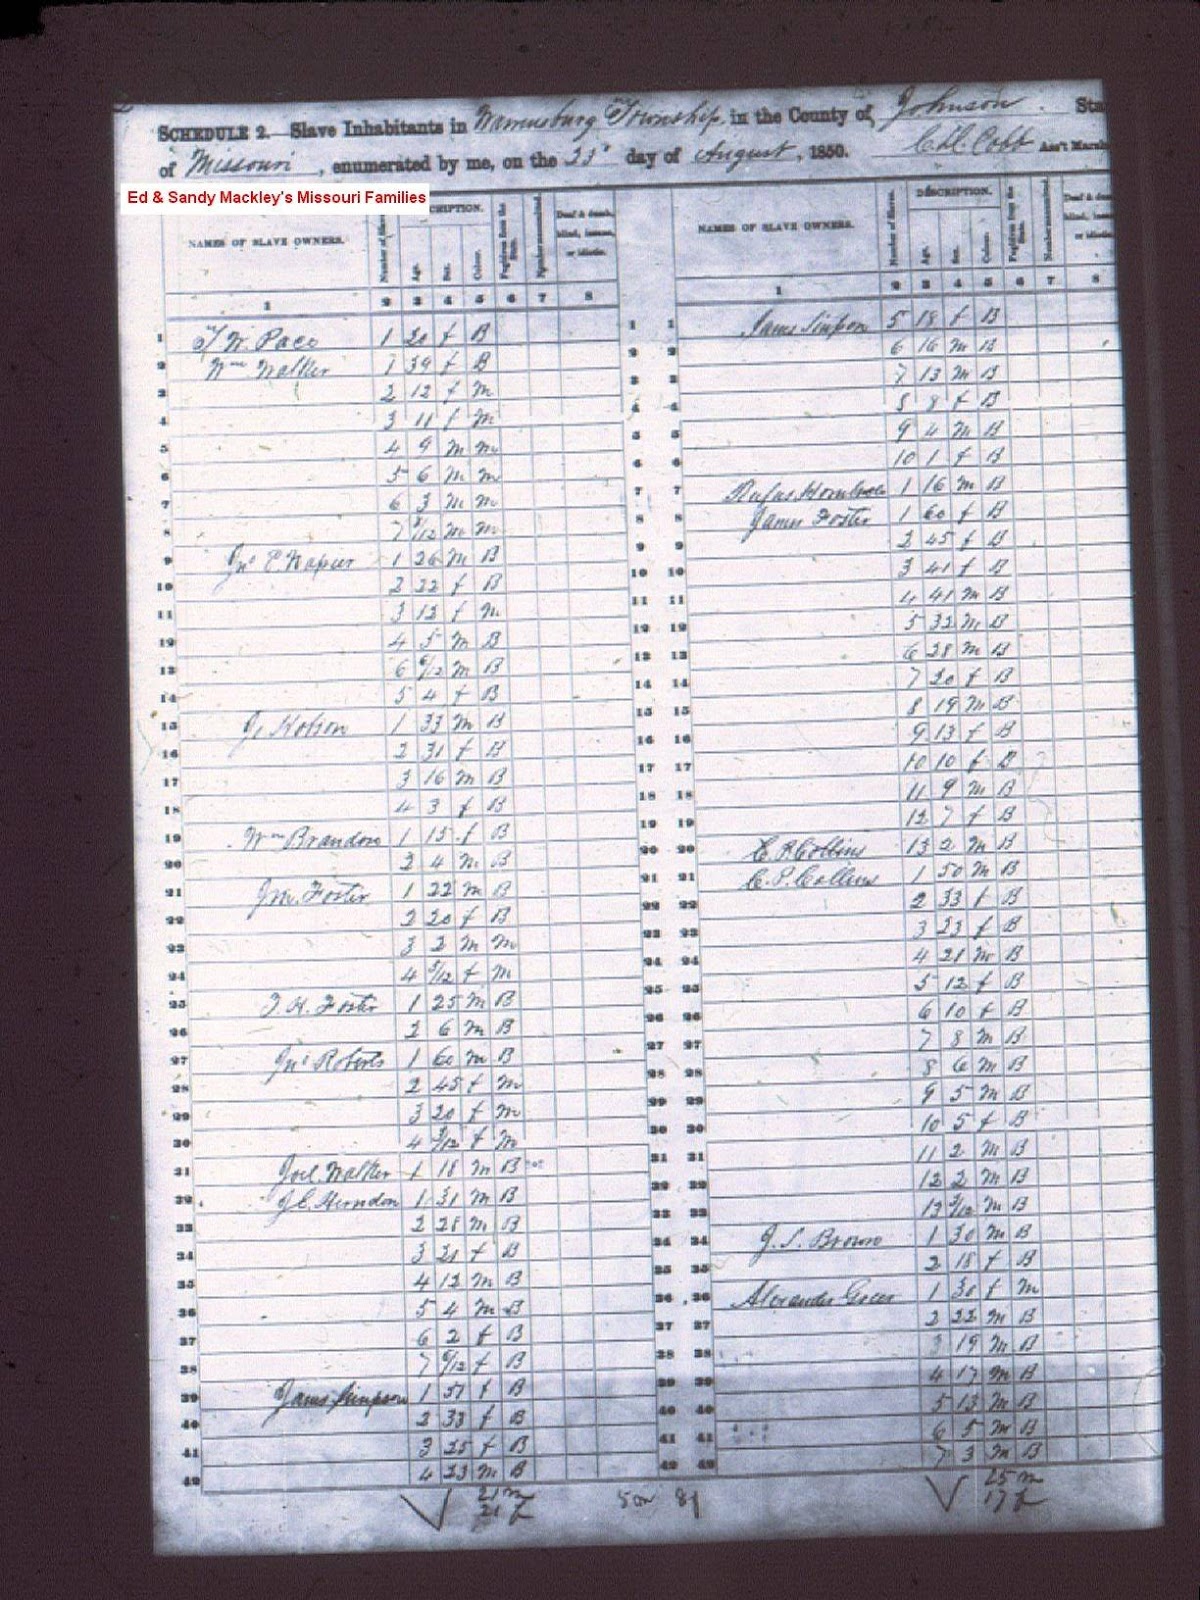 SCHEDULE 2. Slave Inhabitants in Warrensburg Township, in the County of Johnson . Sta
of Missouri, enumerated by me, on the 23d day of August, 1850. C.H. Cobb Ass't Marsh
Ed & Sandy Mackley's Missouri Families
NAMES OF SLAVE OWNERS. Number of Slaves. CRIPTION. Age. Sex. Colour. Fugitives from the State. Number manumitted. Deaf & dumb, blind, insane, or idiotic.
1 2 3 4 5 6 7 8
1 W. Pace 1 20 f B 1
2 Wm Walker 1 39 f B 2
3 2 12 f M 3
4 3 11 f M 4
5 4 9 M M 5
6 5 6 M M 6
7 6 3 M M 7
8 7 /12 M M 8
9 Jno E Napier 1 26 M B 9
10 2 22 f B 10
11 3 12 f M 11
12 4 5 M B 12
13 6 /12 M B 13
14 5 4 f B 14
15 J. 1 33 M B 15
16 2 31 f B 16
17 3 16 M B 17
18 4 3 f B 18
19 Wm Brandon 1 15 f B 19
20 2 4 M B 20
21 Jm. Foster 1 22 M B 21
22 2 20 f B 22
23 3 2 M M 23
24 4 /12 f M 24
25 Foster 1 25 M B 25
26 2 6 M B 26
27 Jno Roberts 1 60 M B 27
28 2 45 f M 28
29 3 20 f M 29
30 4 /12 f M 30
31 Joel Walker 1 18 M B 31
32 J.C. Herndon 1 31 M B 32
33 2 28 M B 33
34 3 21 f B 34
35 4 12 M B 35
36 5 4 M B 36
37 6 2 f B 37
38 7 /12 f B 38
39 James Simpson 1 51 f B 39
40 2 33 f B 40
41 3 25 f B 41
42 4 23 M B 42
21 m
21 f
NAMES OF SLAVE OWNERS. Number of Slaves. DESCRIPTION. Age. Sex. Colour. Fugitives from the State. Number manumitted. Deaf & d blind, insane, or idiotic
1 2 3 4 5 6 7 8
1 James Simpson 5 18 f B
2 6 16 M B
3 7 13 M B
4 8 8 f B
5 9 4 M B
6 10 1 f B
7 Rufus 1 16 M B
8 James Foster 1 60 f B
9 2 45 f B
10 3 41 f B
11 4 41 M B
12 5 32 M B
13 6 28 M B
14 7 20 f B
15 8 19 M B
16 9 13 f B
17 10 10 f B
18 11 9 M B
19 12 7 f B
20 C.P. Collins 13 2 M B
21 C.P. Collins 1 50 M B
22 2 33 f B
23 3 23 f B
24 4 21 M B
25 5 12 f B
26 6 10 f B
27 7 8 M B
28 8 6 M B
29 9 5 M B
30 10 5 f B
31 11 2 M B
32 12 2 M B
33 13 /12 M B
34 J. S. Brown 1 30 M B
35 2 18 f B
36 Alexander Greer 1 30 f M
37 2 22 M B
38 3 19 M B
39 4 17 M B
40 5 13 M B
41 6 5 M B
42 7 3 M B
25 m
17 f